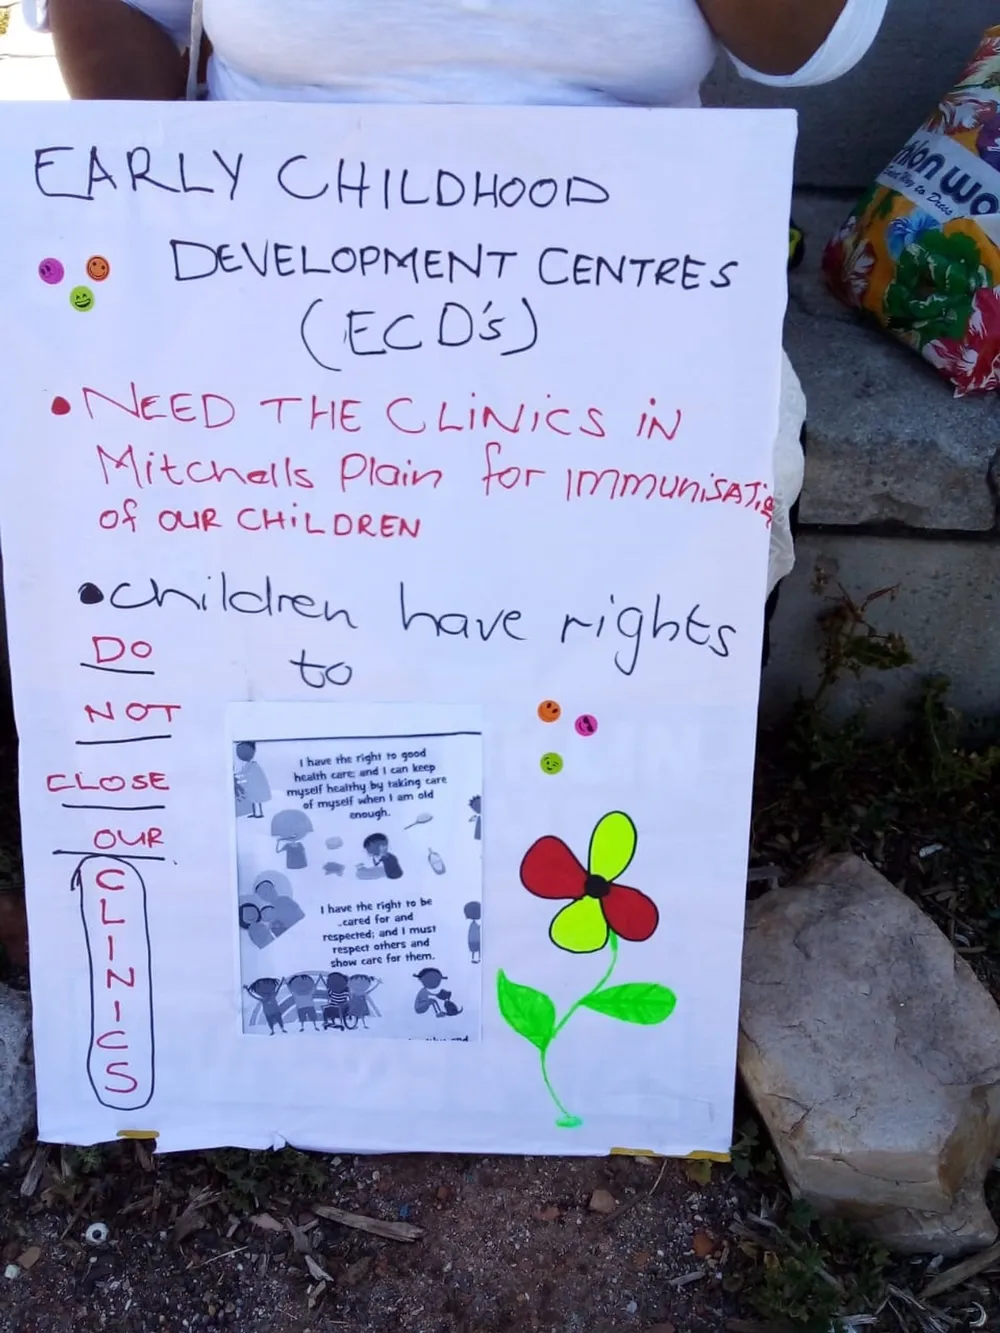 EARLY CHILDHOOD
DEVELOPMENT CENTRES
(ECD's)
• NEED THE CLINICS IN
Mitchells Plain for IMMUNISATION
of OUR CHILDREN
• children have rights
to
DO
NOT
CLOSE
OUR
CLINICS
I have the right to good
health care; and I can keep
myself healthy by taking care
of myself when I am old
enough.
I have the right to be
cared for and
respected; and I must
respect others and
show care for them.
Way to Dress